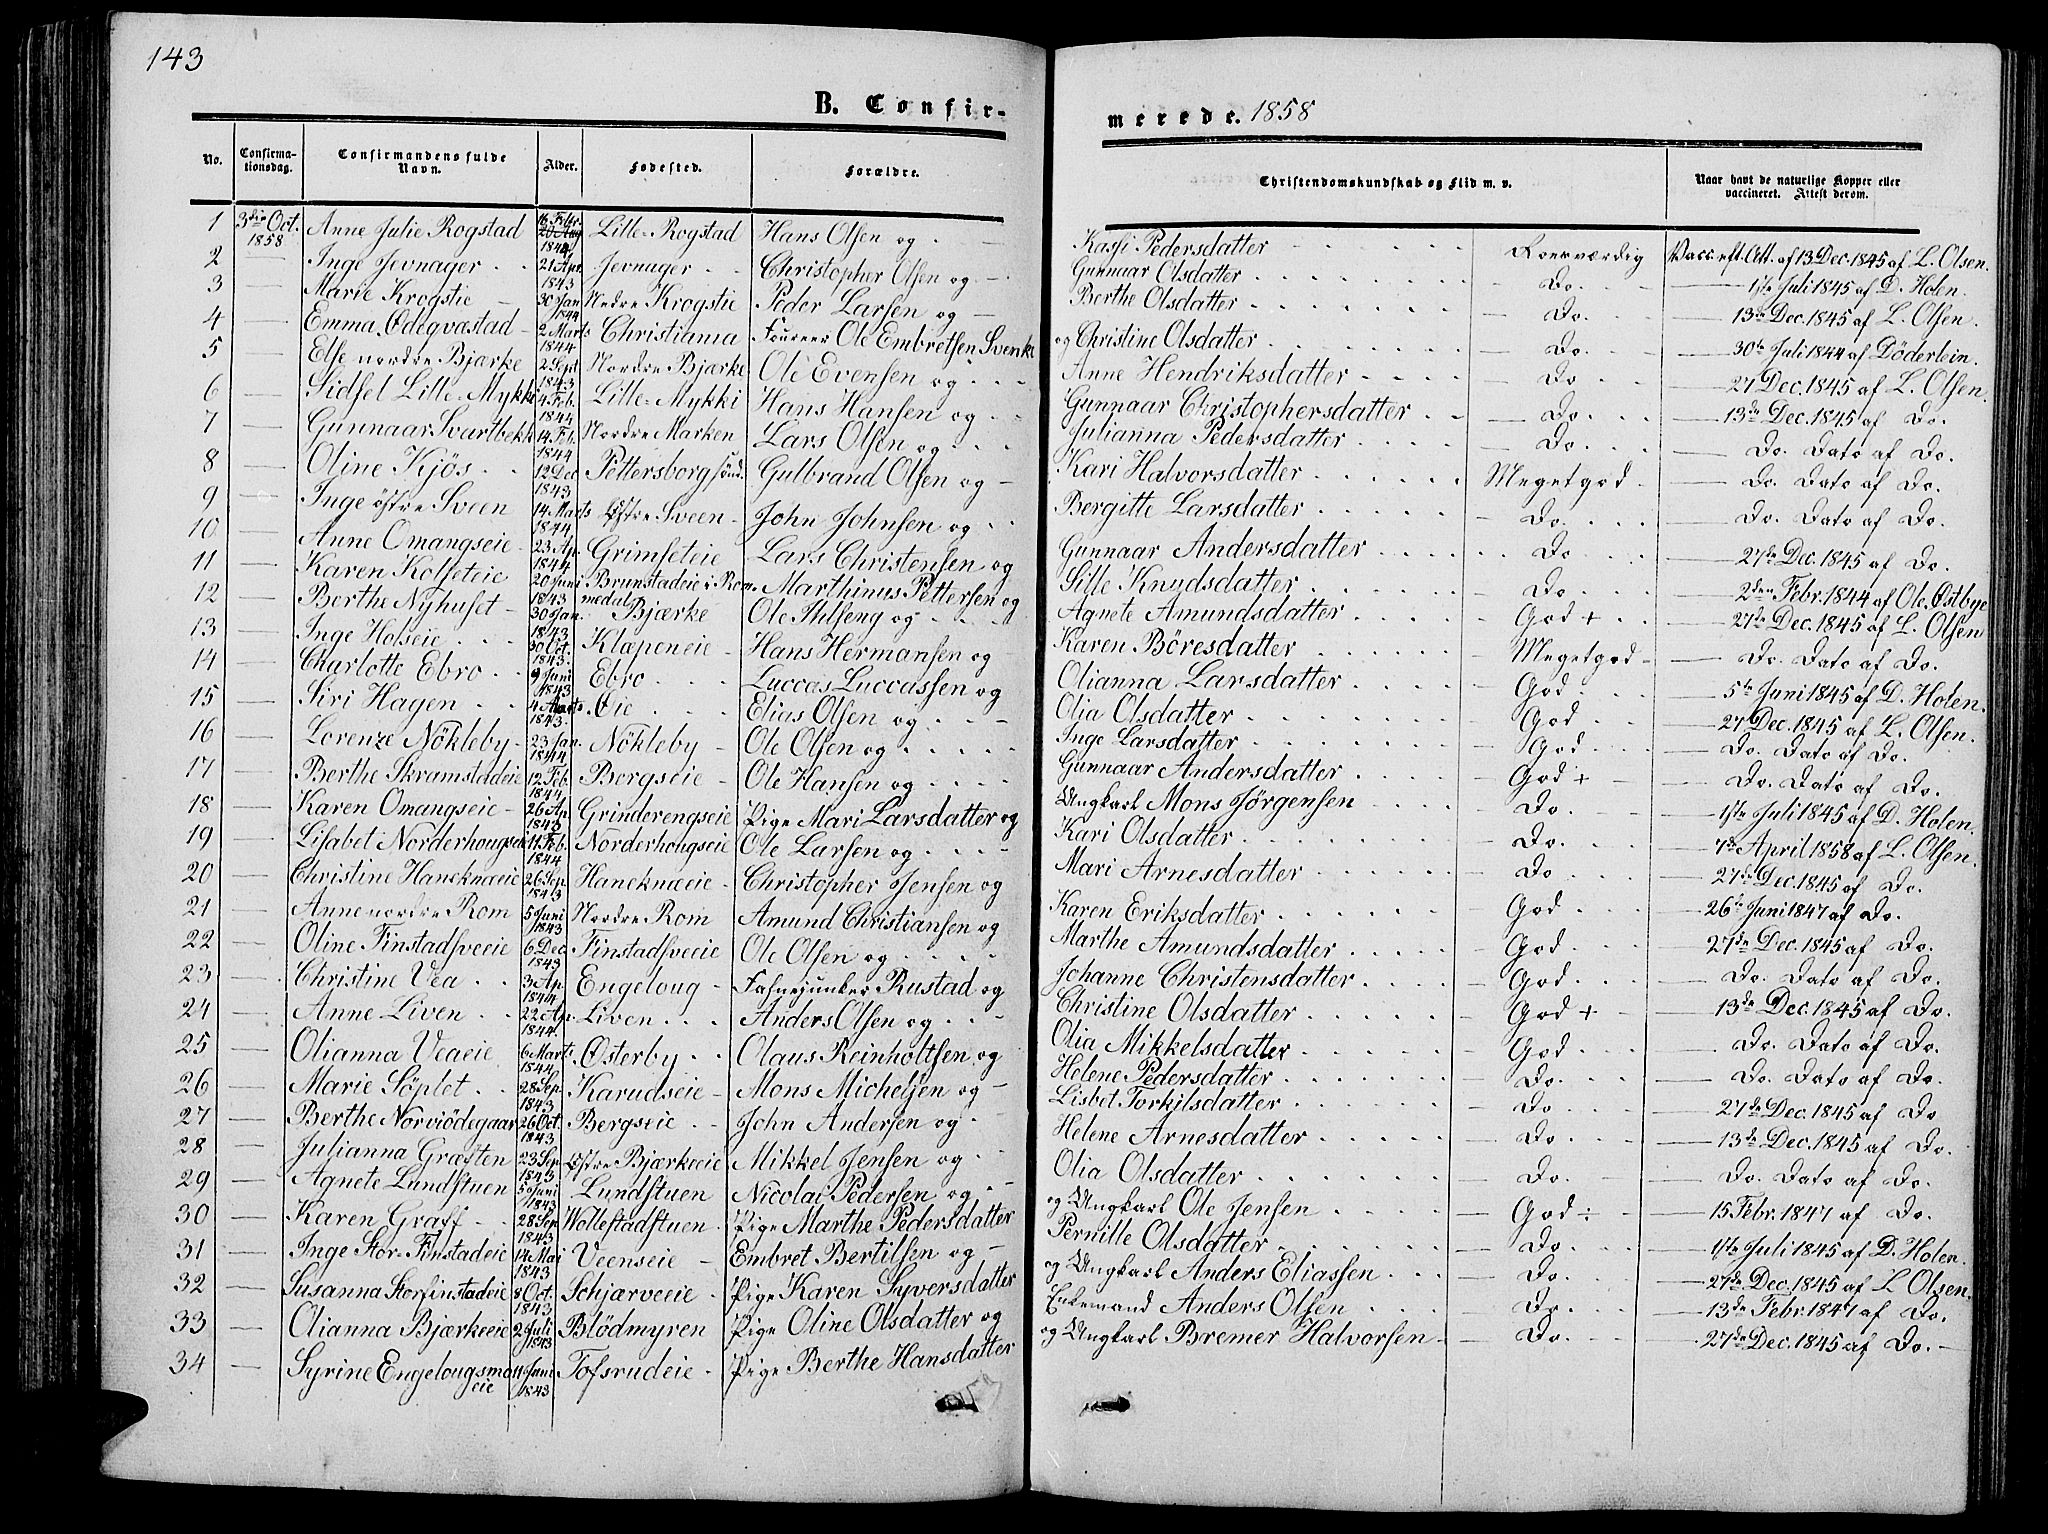 143
B. Confir-
merede. 1858
No. Confirma-tionsdag. Confirmandens fulde Navn. Alder. Fødested. Forældre. Christendomskundskab og Flid m. v. Naar havt de naturlige Kopper eller vaccineret. Attest derom.
1 3die Oct. 1858 Anne Julie Rogstad 16 Febr. 1844 Lille-Rogstad Hans Olsen og Kasfi Pedersdatter Roesværdig Vacc. eft. Att. af 13 Dec. 1845 af L. Olsen.
2 — Inge Jevnager 21 Apr. 1843 Jevnager Christopher Olsen og Gunnaar Olsdatter Do. 1ste Juli 1845 af D. Holen.
3 — Marie Krogstie 30 Jan 1844 Nedre Krogstie Peder Larsen og Berthe Olsdatter Do. 13de Dec. 1845 af L. Olsen.
4 — Emma Ødegvæstad 2 Marts 1844 Christiania Foureer Ole Embretsen Svenke og Christine Olsdatter Do. 30te Juli 1844 af Döderlein.
5 — Else nordre Bjærke 2 Sept 1843 Nordre Bjærke Ole Evensen og Anne Hendriksdatter Do. 27 Dec. 1845 af L. Olsen.
6 — Sidsel Lille-Mykki 4 Feb. 1844 Lille-Mykki Hans Hansen og Gunnaar Christophersdatter Do. 13de Dec. 1845 af Do.
7 — Gunnaar Svartbekk 14 Feb. 1844 Nordre Marken Lars Olsen og Julianna Pedersdatter Do. Do. Dato af Do.
8 — Oline Kjös 12 Dec 1843 Pettersborg sönd. Gulbrand Olsen og Kari Halvorsdatter Megetgod Do. Dato af Do.
9 — Inge östre Sveen 14 Marts 1844 Østre Sveen John Johnsen og Bergitte Larsdatter Do. Do. Dato af Do.
10 — Anne Omangseie 23 Ap. 1844 Grimseteie Lars Christensen og Gunnaar Andersdatter Do 27de Dec. 1845 af Do.
11 — Karen Kolseteie 20 Juni 1843 Brunstadeie i Rommedal Marthinus Pettersen og Sille Knudsdatter Do 2den Febr. 1844 af Ole Østbye
12 — Berthe Nyhuset 30 Jan. 1843 Bjærke Ole Thlseng og Agnete Amundsdatter God + 27de Dec. 1845 af L. Olsen
13 — Inge Holseie 30 Oct. 1843. Klæpeneie Hans Hermansen og Karen Böresdatter Megetgod Do. Dato af Do.
14 — Charlotte Ebro 9 Juni 1843 Ebro Luccas Luccassen og Olianna Larsdatter God 5te Juni 1845 af D. Holen.
15 — Siri Hagen 4 Marts 1843. Øie Elias Olsen og Olia Olsdatter God 27 Dec. 1845 af L. Olsen.
16 — Lorenze Nökleby 23 Jan. 1844 Nökleby Ole Olsen og Inge Larsdatter God Do. Dato af Do.
17 — Berthe Skramstadeie 12 Feb. 1844 Bergseie Ole Hansen og Gunnaar Andersdatter God + Do. Dato af Do.
18 — Karen Omangseie 26 Ap. 1843 Grinderengseie Pige Mari Larsdatter og Ungkarl Mons Jörgensen Do. 1ste Juli 1845 af D. Holen.
19 — Lisabet Norderhougseie 11 Feb. 1844 Norderhougseie Ole Larsen og Kari Olsdatter Do. 7de April 1858 af L. Olsen.
20 — Christine Haneknæeie 26 Sep. 1843 Haneknæeie Christopher Jensen og Mari Arnesdatter Do 27de Dec. 1845 af Do.
21 — Anne nordre Rom 5 Juni 1843 Nordre Rom Amund Christiansen og Karen Eriksdatter God 26te Juni 1847 af Do.
22 — Oline Finstadsveeie 6 Dec 1843 Finstadsveeie Ole Olsen og Marthe Amundsdatter God 27de Dec. 1845 af Do.
23 — Christine Vea 3 Ap 1844 Engeloug Fahnejunker Rustad og Johanne Christensdatter God Do. Dato af Do.
24 — Anne Liven 22 Ap. 1844 Liven Anders Olsen og Christine Olsdatter God + 13de Dec. 1845 af Do.
25 — Olianna Veaeie 6 Marts 1844 Østerby Olaus Reinholtsen og Olia Mikkelsdatter God Do. Dato af Do.
26 — Marie Söplet 28 Sep. 1843 Karudseie Mons Michelsen og Helene Pedersdatter Do. Do. Dato af Do.
27 — Berthe Norviödegaar 26 Oct. 1843 Bergseie John Andersen og Lisbet Torkilsdatter Do 27de Dec. 1845 af Do.
28 Julianna Græsten 23 Sep 1843 Østre Bjærkeeie Mikkel Jensen og Helene Arnesdatter Do 13de Dec. 1845 af Do.
29 — Agnete Lundstuen 5 Juni 1843 Lundstuen Nicolai Pedersen og Olia Olsdatter Do. Do. Dato af Do.
30 — Karen Graff 28 Sep 1843 Wollestadstuen Pige Marthe Pedersdatter og Ungkarl Ole Jensen God ÷ 15 Febr. 1847 af Do.
31 — Inge Stor-Finstadeie 14 Mai 1843 Veenseie Embret Bertilsen og Pernille Olsdatter Do. 1ste Juli 1845 af D. Holen.
32 — Susanna Storfinstadeie 8 Oct. 1843 Schjærveeie Pige Karen Syversdatter og Ungkarl Anders Eliassen Do. 27de Dec. 1845 af L Olsen.
33 — Olianna Bjærkeeie 2 Juli 1843 Blödmyren Pige Oline Olsdatter og Enkemand Anders Olsen Do. 13de Febr. 1847 af Do.
34 — Syrine Engelougsmoeie 4 Juni 1843 Tofsrudeie Pige Berthe Hansdatter og Ungkarl Bremer Halvorsen Do. 27de Dec. 1845 af Do.